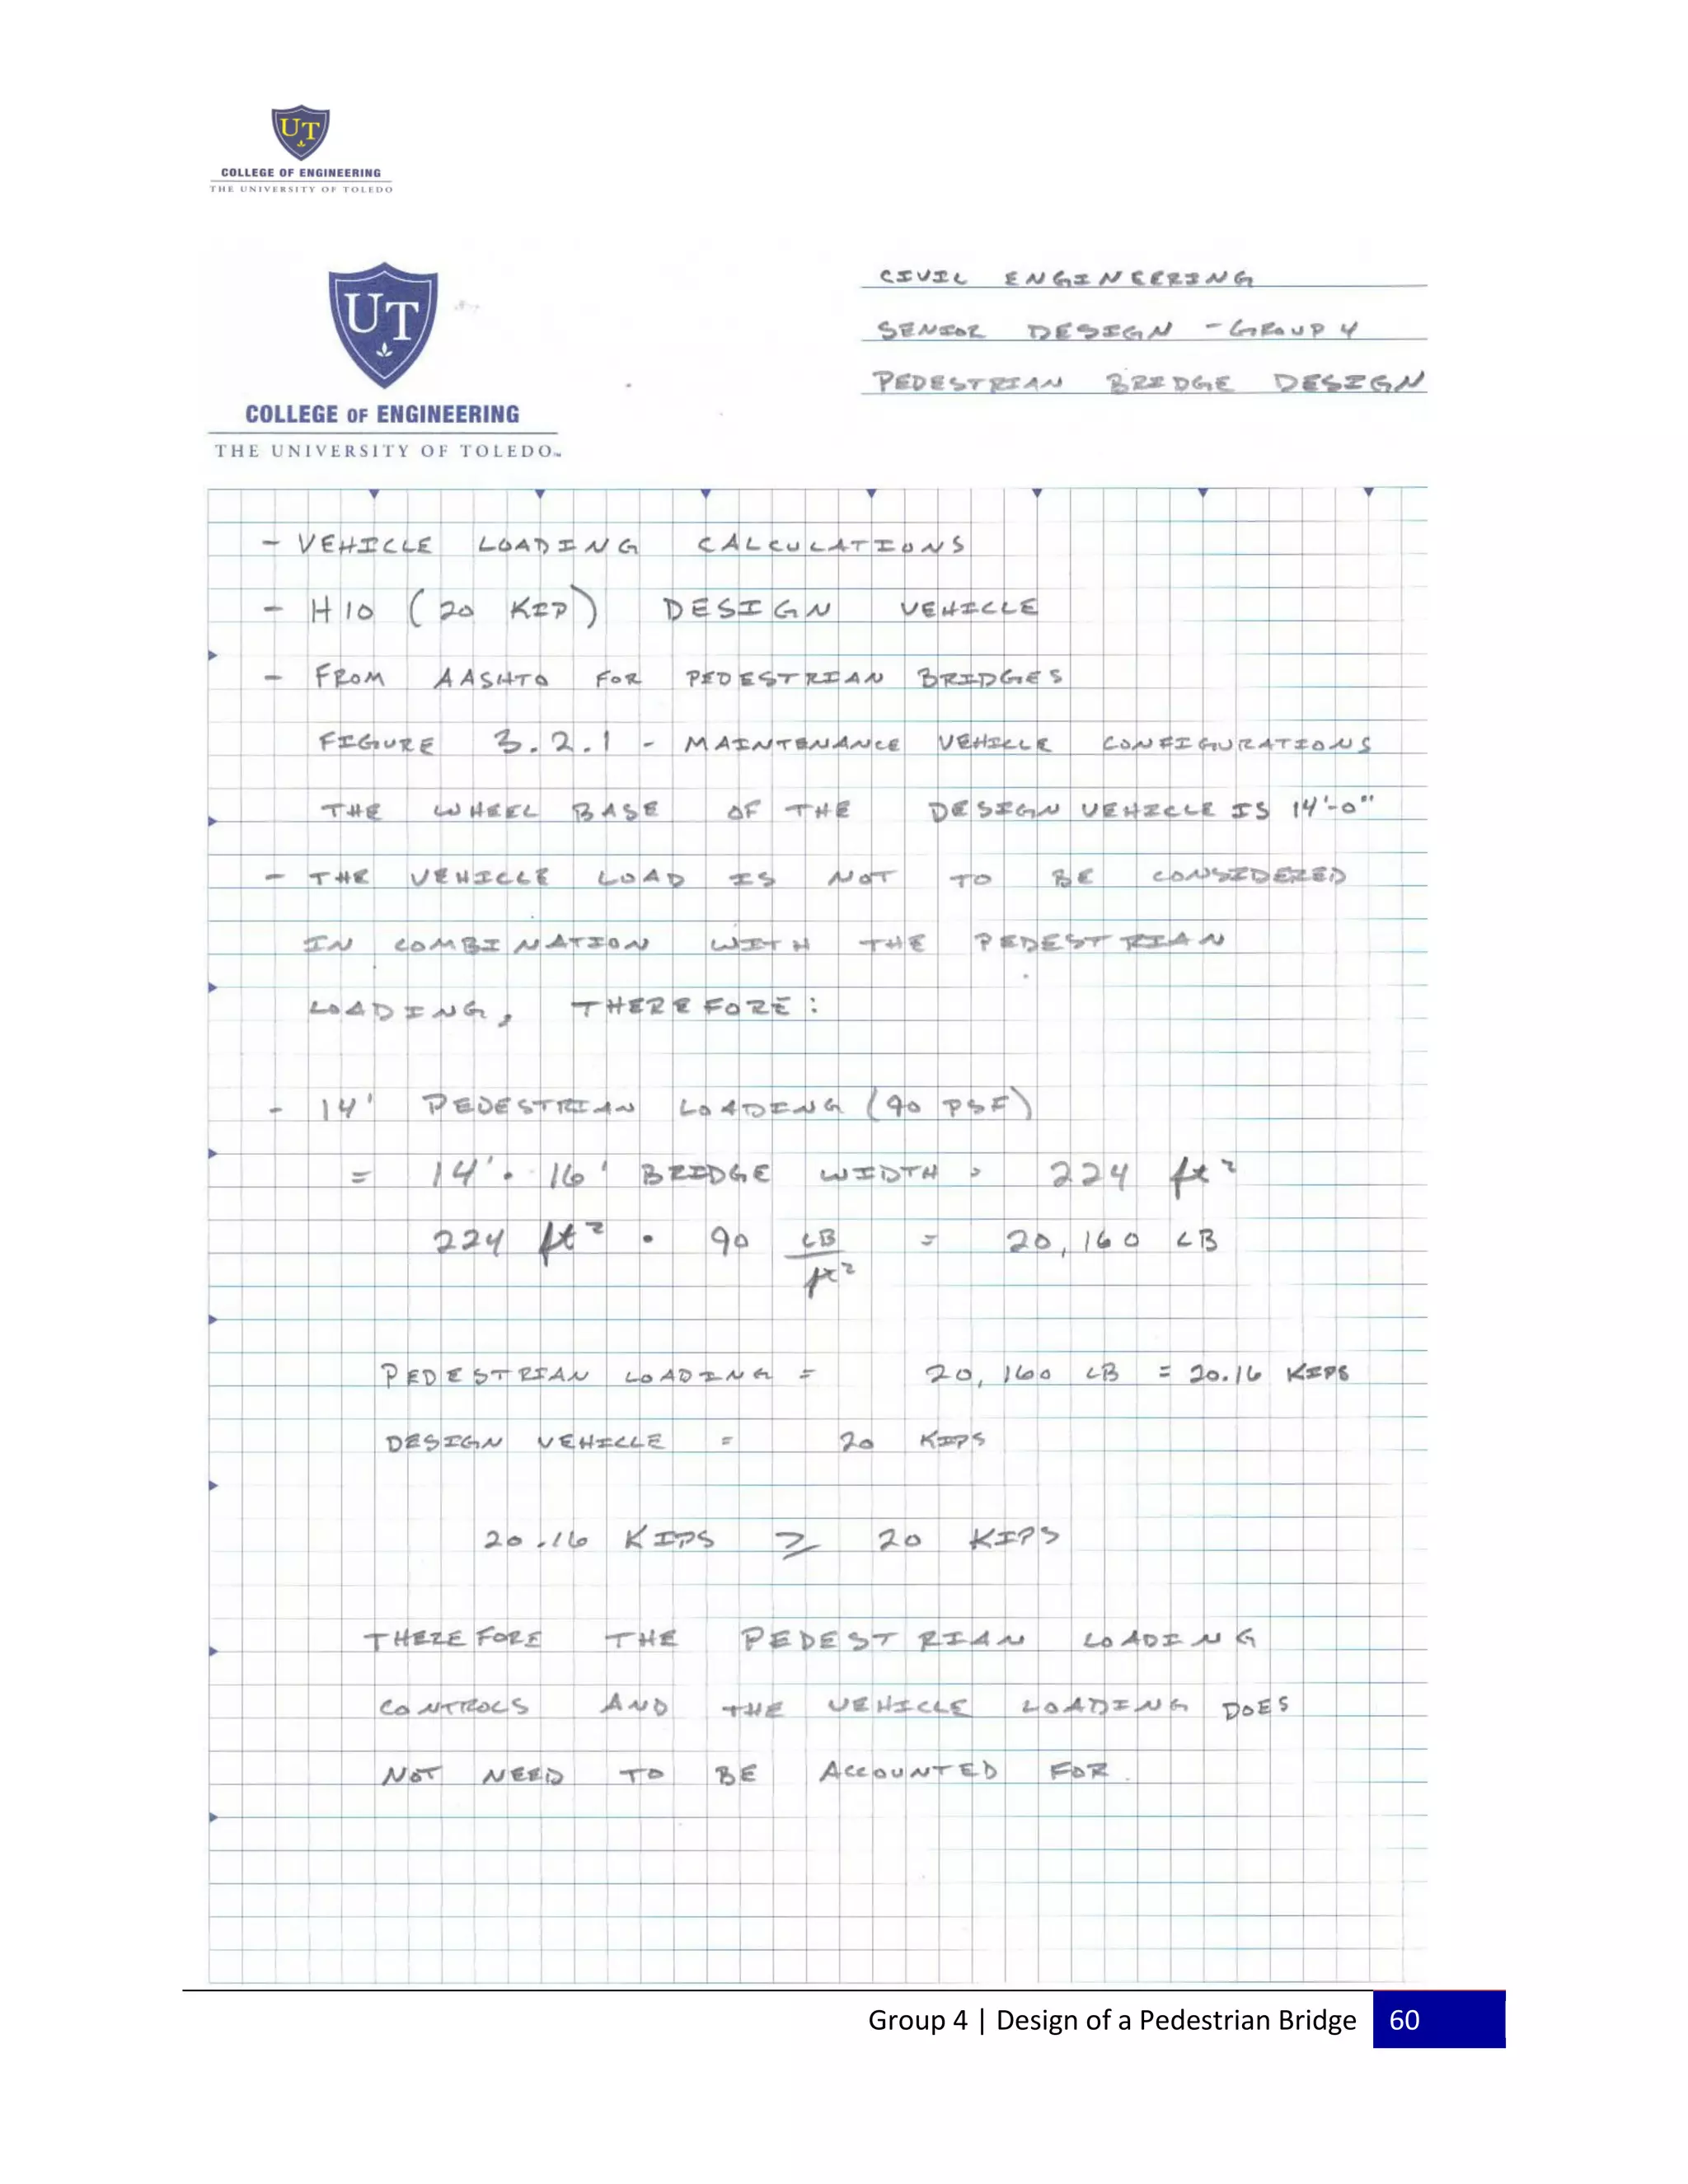 UT
COLLEGE OF ENGINEERING
THE UNIVERSITY OF TOLEDO
UT
COLLEGE OF ENGINEERING
THE UNIVERSITY OF TOLEDO
CIVIL ENGINEERING
SENIOR DESIGN - GROUP 4
PEDESTRIAN BRIDGE DESIGN
- VEHICLE LOADING CALCULATIONS
- H10 (20 KIP) DESIGN VEHICLE
- FROM AASHTO FOR PEDESTRIAN BRIDGES
FIGURE 3.2.1 - MAINTENANCE VEHICLE CONFIGURATIONS
THE WHEEL BASE OF THE DESIGN VEHICLE IS 14'-0"
- THE VEHICLE LOAD IS NOT TO BE CONSIDERED
IN COMBINATION WITH THE PEDESTRIAN
LOADING, THEREFORE:
- 14' PEDESTRIAN LOADING (90 PSF)
= 14' • 16' BRIDGE WIDTH = 224 ft²
224 ft² • 90 LB/ft² = 20,160 LB
PEDESTRIAN LOADING = 20,160 LB = 20.16 KIPS
DESIGN VEHICLE = 20 KIPS
20.16 KIPS ≥ 20 KIPS
THEREFORE THE PEDESTRIAN LOADING
CONTROLS AND THE VEHICLE LOADING DOES
NOT NEED TO BE ACCOUNTED FOR.
Group 4 | Design of a Pedestrian Bridge 60